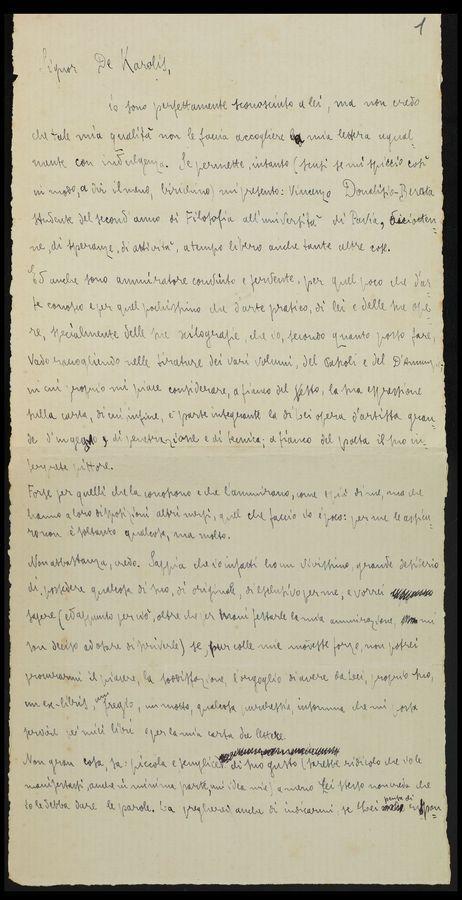 1
Signor De Karolis,
io sono perfettamente sconosciuto a lei, ma non credo
che tale mia qualità non le faccia accogliere la mia lettera ugual-
mente con indulgenza. Se permette, intanto (senti se mi spiccio così
in modo, a dir il meno, birichino) mi presento: Vincenzo
studente del second'anno di Filosofia all'università di Pavia, dicioten-
ne, di speranze, di attività, a tempo libero anche tante altre cose.
Ed anche sono ammiratore convinto e fervente, per quel poco che d'ar-
te conosco e per quel pochissimo che d'arte pratico, di lei e delle sue ope-
re, specialmente delle sue xilografie, che io, secondo quanto posso fare,
vado raccogliendo nelle tirature dei vari volumi, del Pascoli e del D'Annun
in cui proprio mi piace considerare, a fianco del testo, la sua espressione
sulla carta, di cui infine, è parte integrante la di Lei opera d'artista gran-
de d'ingegno, di penetrazione e di tecnica; a fianco del poeta il suo in-
terprete pittore.
Forse per quelli che la conoscono e che l'ammirano, come e più di me, ma che
hanno a loro disposizioni altri mezzi, quel che faccio io è poco: per me le assicu-
ro non è soltanto qualcosa, ma molto.
Non abbastanza, credo. Sappia che io infatti ho un vivissimo, grande desiderio
di possedere qualcosa di suo, di originale, di esclusivo per me, e vorrei
sapere (ed appunto per ciò, oltre che per manifestarle la mia ammirazione, mi
son deciso ad osare di scriverle) se, pur colle mie modeste forze, non potrei
procurarmi il piacere, la soddisfazione, l'orgoglio di avere da Lei, proprio suo,
un ex-libris, un fregio, un motto, qualcosa purchessia, insomma che mi possa
servire pei miei libri e per la mia carta da lettere.
Non gran cosa, sa: piccola e semplice: di suo gusto (sarebbe ridicolo che vole
manifestarsi, anche in minima parte, un'idea mia) a meno Lei stesso non creda che
io le debba dare le parole. La pregherei anche di indicarmi, se Lei pensa di rispon=